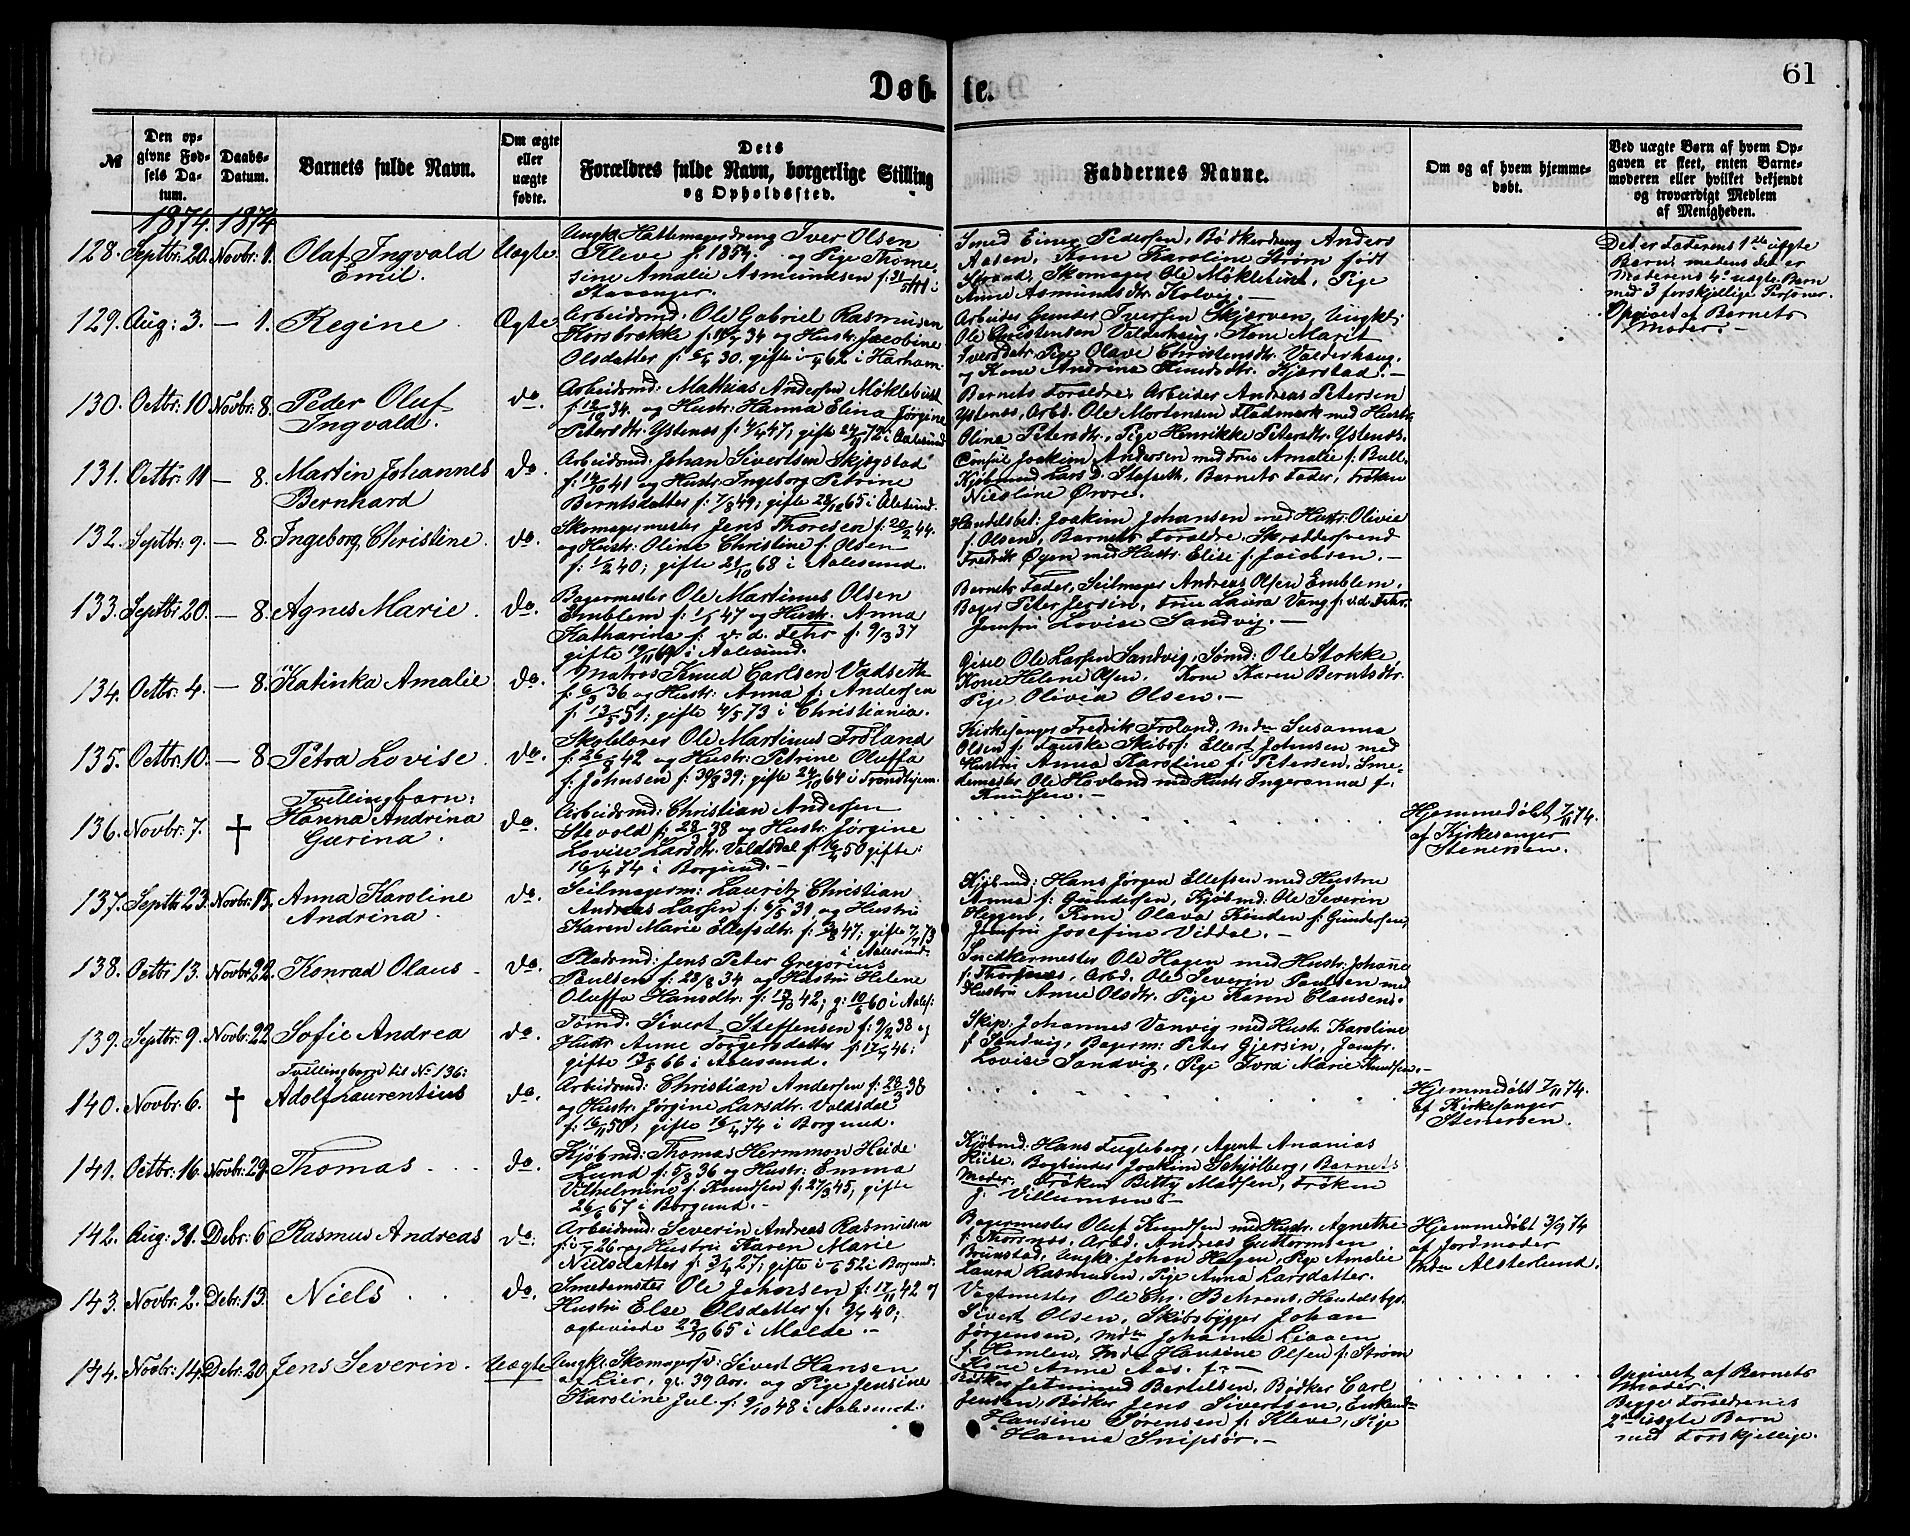 Døbte.
61
№
Den opgivne Fødsels Datum.
Daabs-Datum.
Barnets fulde Navn.
Om ægte eller uægte fødte.
Dets Forældres fulde Navn, borgerlige Stilling og Opholdssted.
Faddernes Navne.
Om og af hvem hjemmedøbt.
Ved uægte Børn af hvem Opgaven er skeet, enten Barnemoderen eller hvilket bekjendt og troværdigt Medlem af Menigheden.
1874. 1874
128. Septbr: 20. Novbr: 1. Olaf Ingvald
Emil.
Uægte.
Ungk. Hattemagerdreng Iver Olsen
Kleve f. 1854. og Pige Thome-
sine Amalie Asmundsen
Stavanger.
Smed Einer Pedersen, Bødkerdreng Anders
Aasen, Kone Karoline Strøm født
Skomager Ole Møklebust, Pige
Anne Asmundsdtr. Kolvig.
Det er Faderens 1ste uægte
Barn, medens det er
Moderens 4de uægte Barn
med 3 forskjellige Personer.
Opgivet af Barnets
Moder.
129. Aug: 3. — 1. Regine
Ægte.
Arbeidsmd: Ole Gabriel Rasmusen
Korsbrække og Hustr. Jacobine
Olsdatter gifte 62 i Harham.
Arbeider Gunder Iversen Skjerven, Ungkl:
Ole Christensen Valderhaug, Kone Marit
Iversdtr. Pige Olave Christensdtr. Valderhaug.
og Kone Andrine Knudsdtr. Kjærstad.
130. Octbr: 10 Novbr: 8. Peder Oluf
Ingvald.
do.
Arbeidsmd: Mathias Andersen Møklebust
f. 12/10 34. og Hustr: Hanna Elina Jørgine
Petersdtr. Ystenes f. 4/4 47; gifte 24/11 72 i Aalesund.
Barnets Forældre, Arbeider Andreas Petersen
Ystenes, Arbd. Ole Mortensen Flademark med Hustr.
Olina Petersdtr., Pige Henrikke Petersdtr. Ystenes.
131. Octbr: 11 — 8. Martin Johannes
Bernhard
do.
Arbeidsmd: Johan Sivertsen Skjegstad
f. 12/10 41 og Hustr: Ingeborg Petrine
Berntsdatter f. 7/8 49; gifte 28/12 65 i Aalesund.
Consul Joakim Andersen med Frue Amalie f. Bull.
Kjøbmand Lars D. Stafseth, Barnets Fader, Frøken
Nicoline Ørvre.
132. Septbr: 9. — 8. Ingeborg Christine.
do.
Skomagermester Jens Thoresen f. 20/2 44.
og Hustr: Oline Christine f. Olsen
f: 1/2 40; gifte 21/10 68 i Aalesund.
Handelsbet: Joakim Johansen med Hustr: Olivie
f. Olsen, Barnets Forældre. Skræddersvend
Fredrik Øyen med Hustr. Elise f. Jacobsen.
133. Septbr: 20. — 8. Agnes Marie.
do.
Bagermester Ole Martinus Olsen
Emblem f: 1/5 47 og Hustr. Anna
Katharina f: v. d. Fehr f: 9/3 37
gifte 19/11 69 i Aalesund.
Barnets Fader, Seilmager Andreas Olsen Emblem,
Bager Peter Jersin, Frue Laura Vang f. v.d. Fehr.
Jomfru Lovise Sandvig.
134. Octbr: 4. — 8. Katinka Amalie
do.
Matros Knud Carlsen Vadseth
f: 6/3 36 og Hustr: Anna f: Andersen
f: 13/5 51; gifte 4/5 73 i Christiania.
Gisel Ole Larsen Sandvig, Sømd: Ole Stokke
Kone Helene Olsen, Kone Karen Berntsdtr.
Pige Olivia Olsen.
135. Octbr: 10. — 8 Petra Lovise.
do.
Skolelærer Ole Martinus Frøland
f: 26/5 42 og Hustr: Petrine Oluffa
f: Johnsen f: 30/8 39; gifte 24/11 64 i Trondhjem.
Kirkesanger Fredrik Frøland, Mdm Susanna
Olsen f: Fauske Skibsf: Ellert Johnsen med
Hustru Anna Karoline f: Petersen, Sme-
demester Ole Hovland med Hustr. Ingeranna f.
Knudsen.
136. Novbr: 7. †
Tvillingbarn:
Hanna Andrina
Gurina.
do.
Arbeidsmd: Christian Andersen
Stevold f. 28/3 38 og Hustr: Jørgine
Lovise Larsdtr. Valdsdal f: 16/11 50 gifte:
16/4 74 i Borgund.
Hjemmedøbt 7/11 74.
af Kirkesanger
Stenersen.
137. Septbr 23. Novbr: 15. Anna Karoline
Andrina.
do.
Seilmagerm: Lauritz Christian
Andreas Larsen f: 6/5 31 og Hustru
Karen Marie Ellefsdtr. 47; gifte 7/7 73
i Aalesund.
Kjøbmd: Hans Jørgen Ellefsen med Hustru
Anna f: Gundersen, Kjøbmd: Ole Severin
Heggen, Kone Olava Knuden f: Gundersen,
Jomfru Josefine Viddal.
138. Octbr 13. Novbr: 22. Konrad Olaus
do.
Pladsmd: Jens Peter Gregorius
Paulsen f: 28/8 34 og Hustru Helene
Oluffa Hansdtr. f: 17/10 42; g: 10/6 60 i Aales:
Snedkermester Ole Hagen med Hustr. Johanne
f: Thorsnes, Arbd. Ole Severin Paulsen med
Hustru Anne Olsdtr. Pige Karen Clausen.
139. Septbr: 9. Novbr: 22 Sofie Andrea
do.
Tømd. Sivert Steffensen f: 9/2 38 og
Hustr: Anne Torgersdatter f: 17/7 46;
gifte 13/5 66 i Aalesund.
Skip. Johannes Vanvig med Hustr. Karoline
f Sandvig, Bagerm: Peter Gjersin, Jomfr.
Lovise Sandvig, Pige Ivra Marie Knudsen.
140. Novbr: 6. †
Tvillingbarn til No 136:
Adolf Laurentius
do.
Arbeidsmd: Christian Andersen f: 28/3 38
og Hustr: Jørgine Larsdtr. Valdsdal
f: 16/11 50; gifte 16/4 74 i Borgund.
Hjemmedøbt 7/11 74.
af Kirkesanger
Stenersen.
141. Octbr: 16. Novbr: 29. Thomas
do.
Kjøbmd: Thomas Hermmon Heide
Lund f: 5/8 36 og Hustr: Emma
Vilhelmine f: Knudsen f: 27/3 45, gifte
26/6 67 i Borgund.
Kjøbmd: Hans Fugleberg, Agent Ananias
Riise, Bogbinder Joakim Schjølberg, Barnets
Moder, Frøken Betty Madsen, Frøken
J. Villumsen
142. Aug: 31. Debr: 6 Rasmus Andreas
do.
Arbeidsmd: Severin Andreas Rasmusen
26 og Hustru Karen Marie
Nielsdatter 27; gifte 52 i Borgund.
Bagermester Oluf Knudsen med Hustr. Agnethe
f: Thorsnes, Arbd. Andreas Guttormsen
Brunstad, Ungk. Johan Hagen, Pige Amalie
Laura Rasmusen, Pige Anna Larsdatter.
Hjemmedøbt 3/9 74
af Jordmoder
Mdm Alsterlund.
143. Novbr: 2. Debr: 13. Niels
do.
Smedemster Ole Johnsen f: 17/11 42 og
Hustru Else Olsdatter 40;
ægteviede 23/10 65 i Molde.
Vagtmester Ole Chr. Behrens, Handelsbgr.
Sivert Olsen, Skibsbygger Johan
Jørgensen, Mdm Johanne Liaaen
f: Hamlen, Mdm Hansine Olsen f: Strøm
Kone Anne Aas.
144. Novbr: 14. Debr: 20 Jens Severin.
Uægte
Ungk: Skomagersv: Sivert Hansen
af Lier, g: 39 Aar. og Pige Jensine
Karoline Jul. f: 9/10 48 i Aalesund:
Bertelsen, Bødker Carl
Jensen, Bødker Jens Sivertsen, Enkemdm
Hansine Sørensen f. Kleve, Pige
Hanna Snipsør.
Opgivet af Barnets
Moder.
Begge Forældrenes
2det uægte Barn
med Forskjellige.